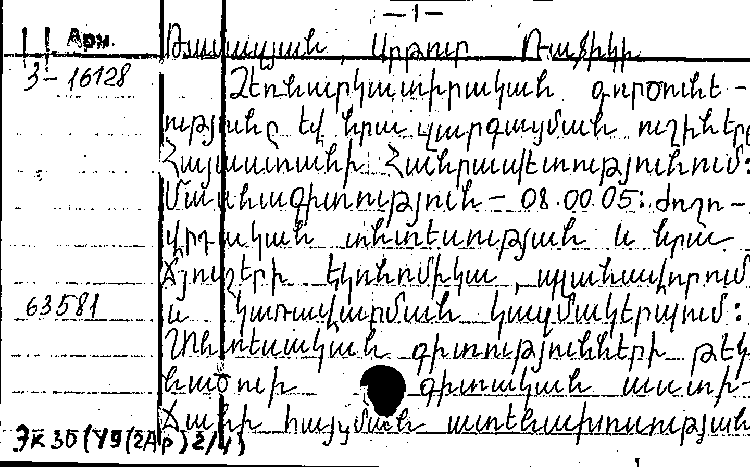 —1—
Арм. Թամազյան Արթուր Ռաֆիկի
3-16128 Ձեռնարկատիրական գործունե-
ությունը եվ նրա զարգացման ուղիները
Հայաստանի Հանրապետությունում:
Մասնագիտություն – 08.00.05: Ժողո-
վրդական տնտեսության և նրա
ճյուղերի եկոնոմիկա, պլանավորում
63581 և կառավարման կազմակերպում:
Տնտեսական գիտությունների թեկ
նածուի գիտական աստի-
ճանի հայցման ատենախոսության
Эк 30(49(2Ар)2/4)